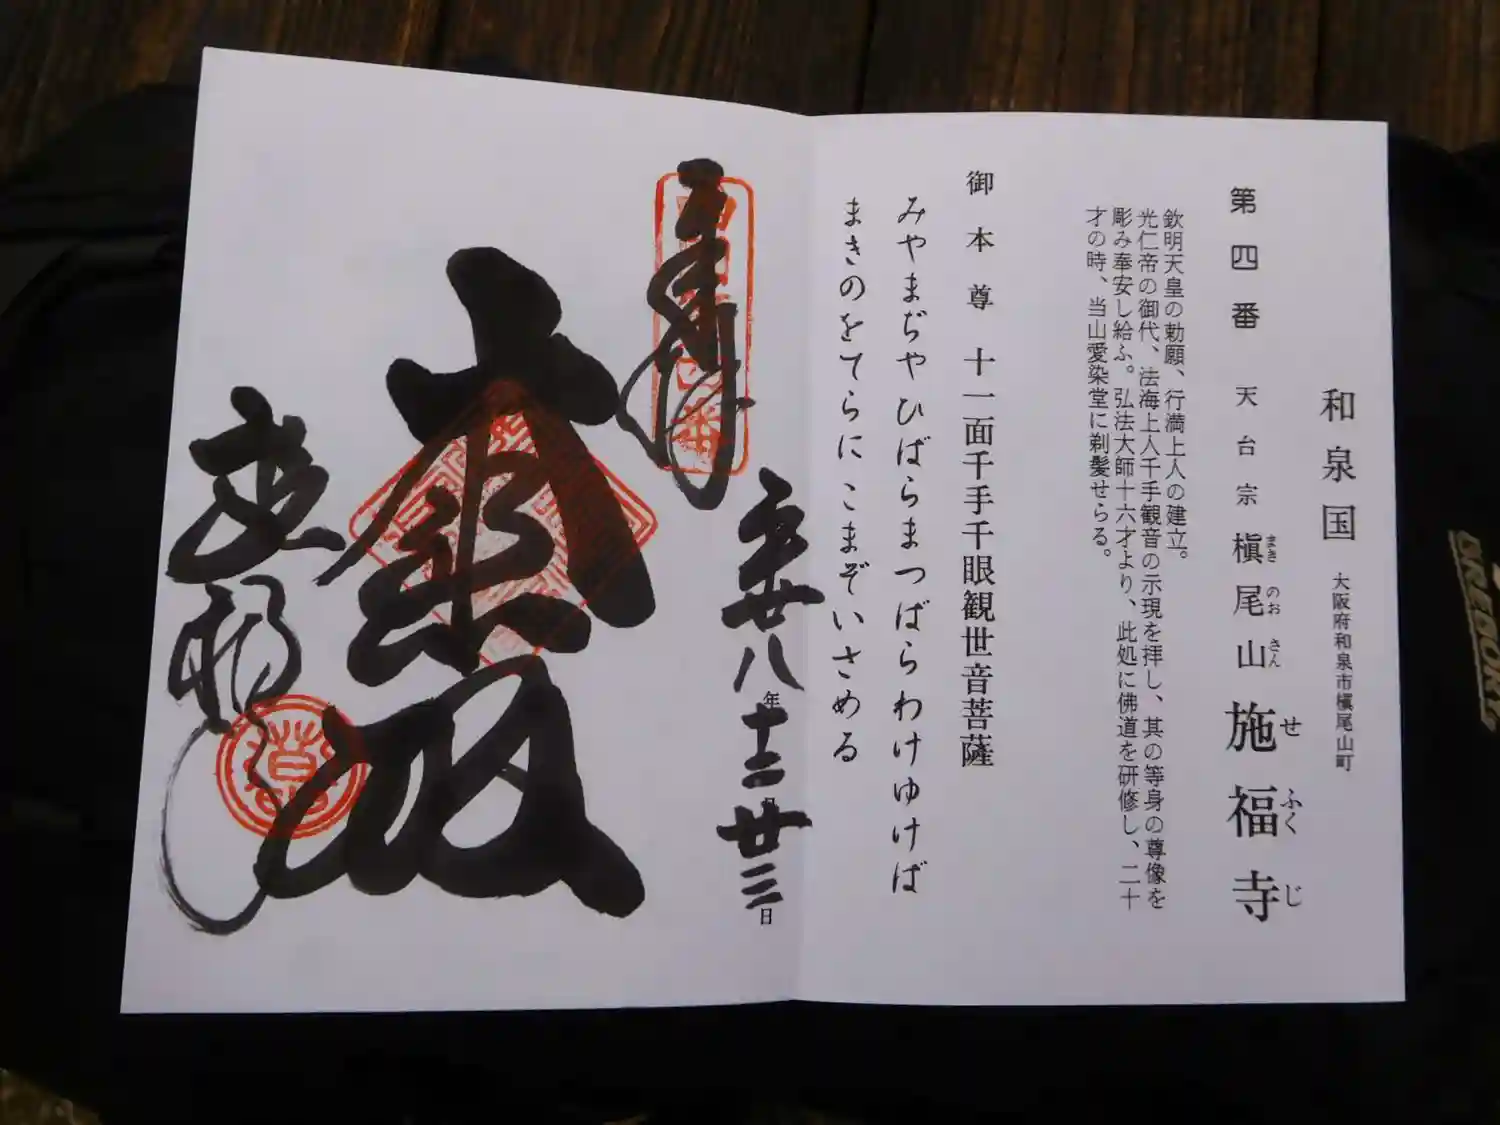 和泉国 大阪府和泉市槇尾山町
第四番 天台宗 槇尾山 施福寺
まきのおさん せふくじ
欽明天皇の勅願、行満上人の建立。
光仁帝の御代、法海上人千手観音の示現を拝し、其の等身の尊像を
彫み奉安し給ふ。弘法大師十六才より、此処に佛道を研修し、二十
才の時、当山愛染堂に剃髪せらる。
御本尊 十一面千手千眼観世音菩薩
みやまぢやひばらまつばらわけゆけば
まきのをてらにこまぞいさめる
奉拝
平廿八年十二月廿三日
大悲殿
施福寺
GREGORY